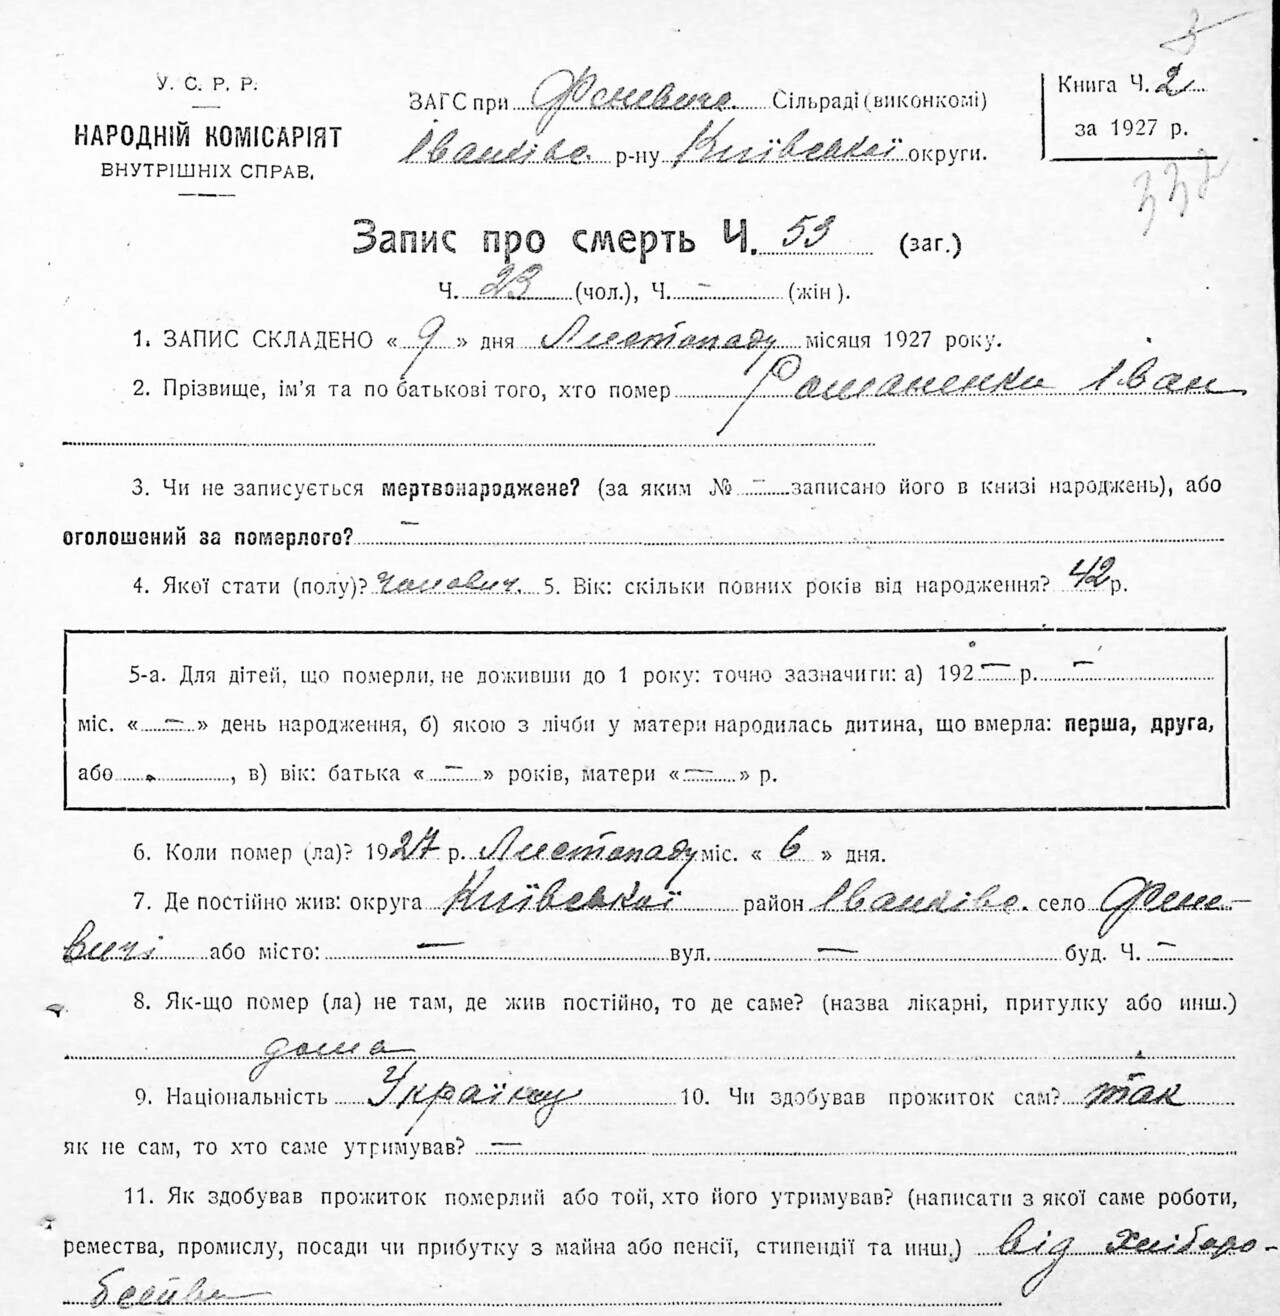 У. С. Р. Р.
НАРОДНІЙ КОМІСАРІЯТ
ВНУТРІШНІХ СПРАВ.
ЗАГС при Феневиче. Сільраді (виконкомі)
Іванківс. р-ну Київської округи.
Книга Ч. 2
за 1927 р.
Запис про смерть Ч. 53 (заг.)
Ч. 23 (чол.), Ч. – (жін).
1. ЗАПИС СКЛАДЕНО « 9 » дня Листопаду місяця 1927 року.
2. Прізвище, ім'я та по батькові того, хто помер Романенко Іван
3. Чи не записується мертвонароджене? (за яким № – записано його в книзі народжень), або
оголошений за померлого? –
4. Якої стати (полу)? чолович. 5. Вік: скільки повних років від народження? 42 р.
5-а. Для дітей, що померли, не доживши до 1 року: точно зазначити: а) 192 – р. –
міс. « – » день народження, б) якою з лічби у матери народилась дитина, що вмерла: перша, друга,
або , в) вік: батька « – » років, матери « – » р.
6. Коли помер (ла)? 1927 р. Листопаду міс. « 6 » дня.
7. Де постійно жив: округа Київської район Іванківс. село Фене-
вичі або місто: – вул. – буд. Ч. –
8. Як-що помер (ла) не там, де жив постійно, то де саме? (назва лікарні, притулку або инш.)
дома
9. Національність Українц 10. Чи здобував прожиток сам? так
як не сам, то хто саме утримував? –
11. Як здобував прожиток померлий або той, хто його утримував? (написати з якої саме роботи,
ремества, промислу, посади чи прибутку з майна або пенсії, стипендії та инш.) від хліборо-
бства